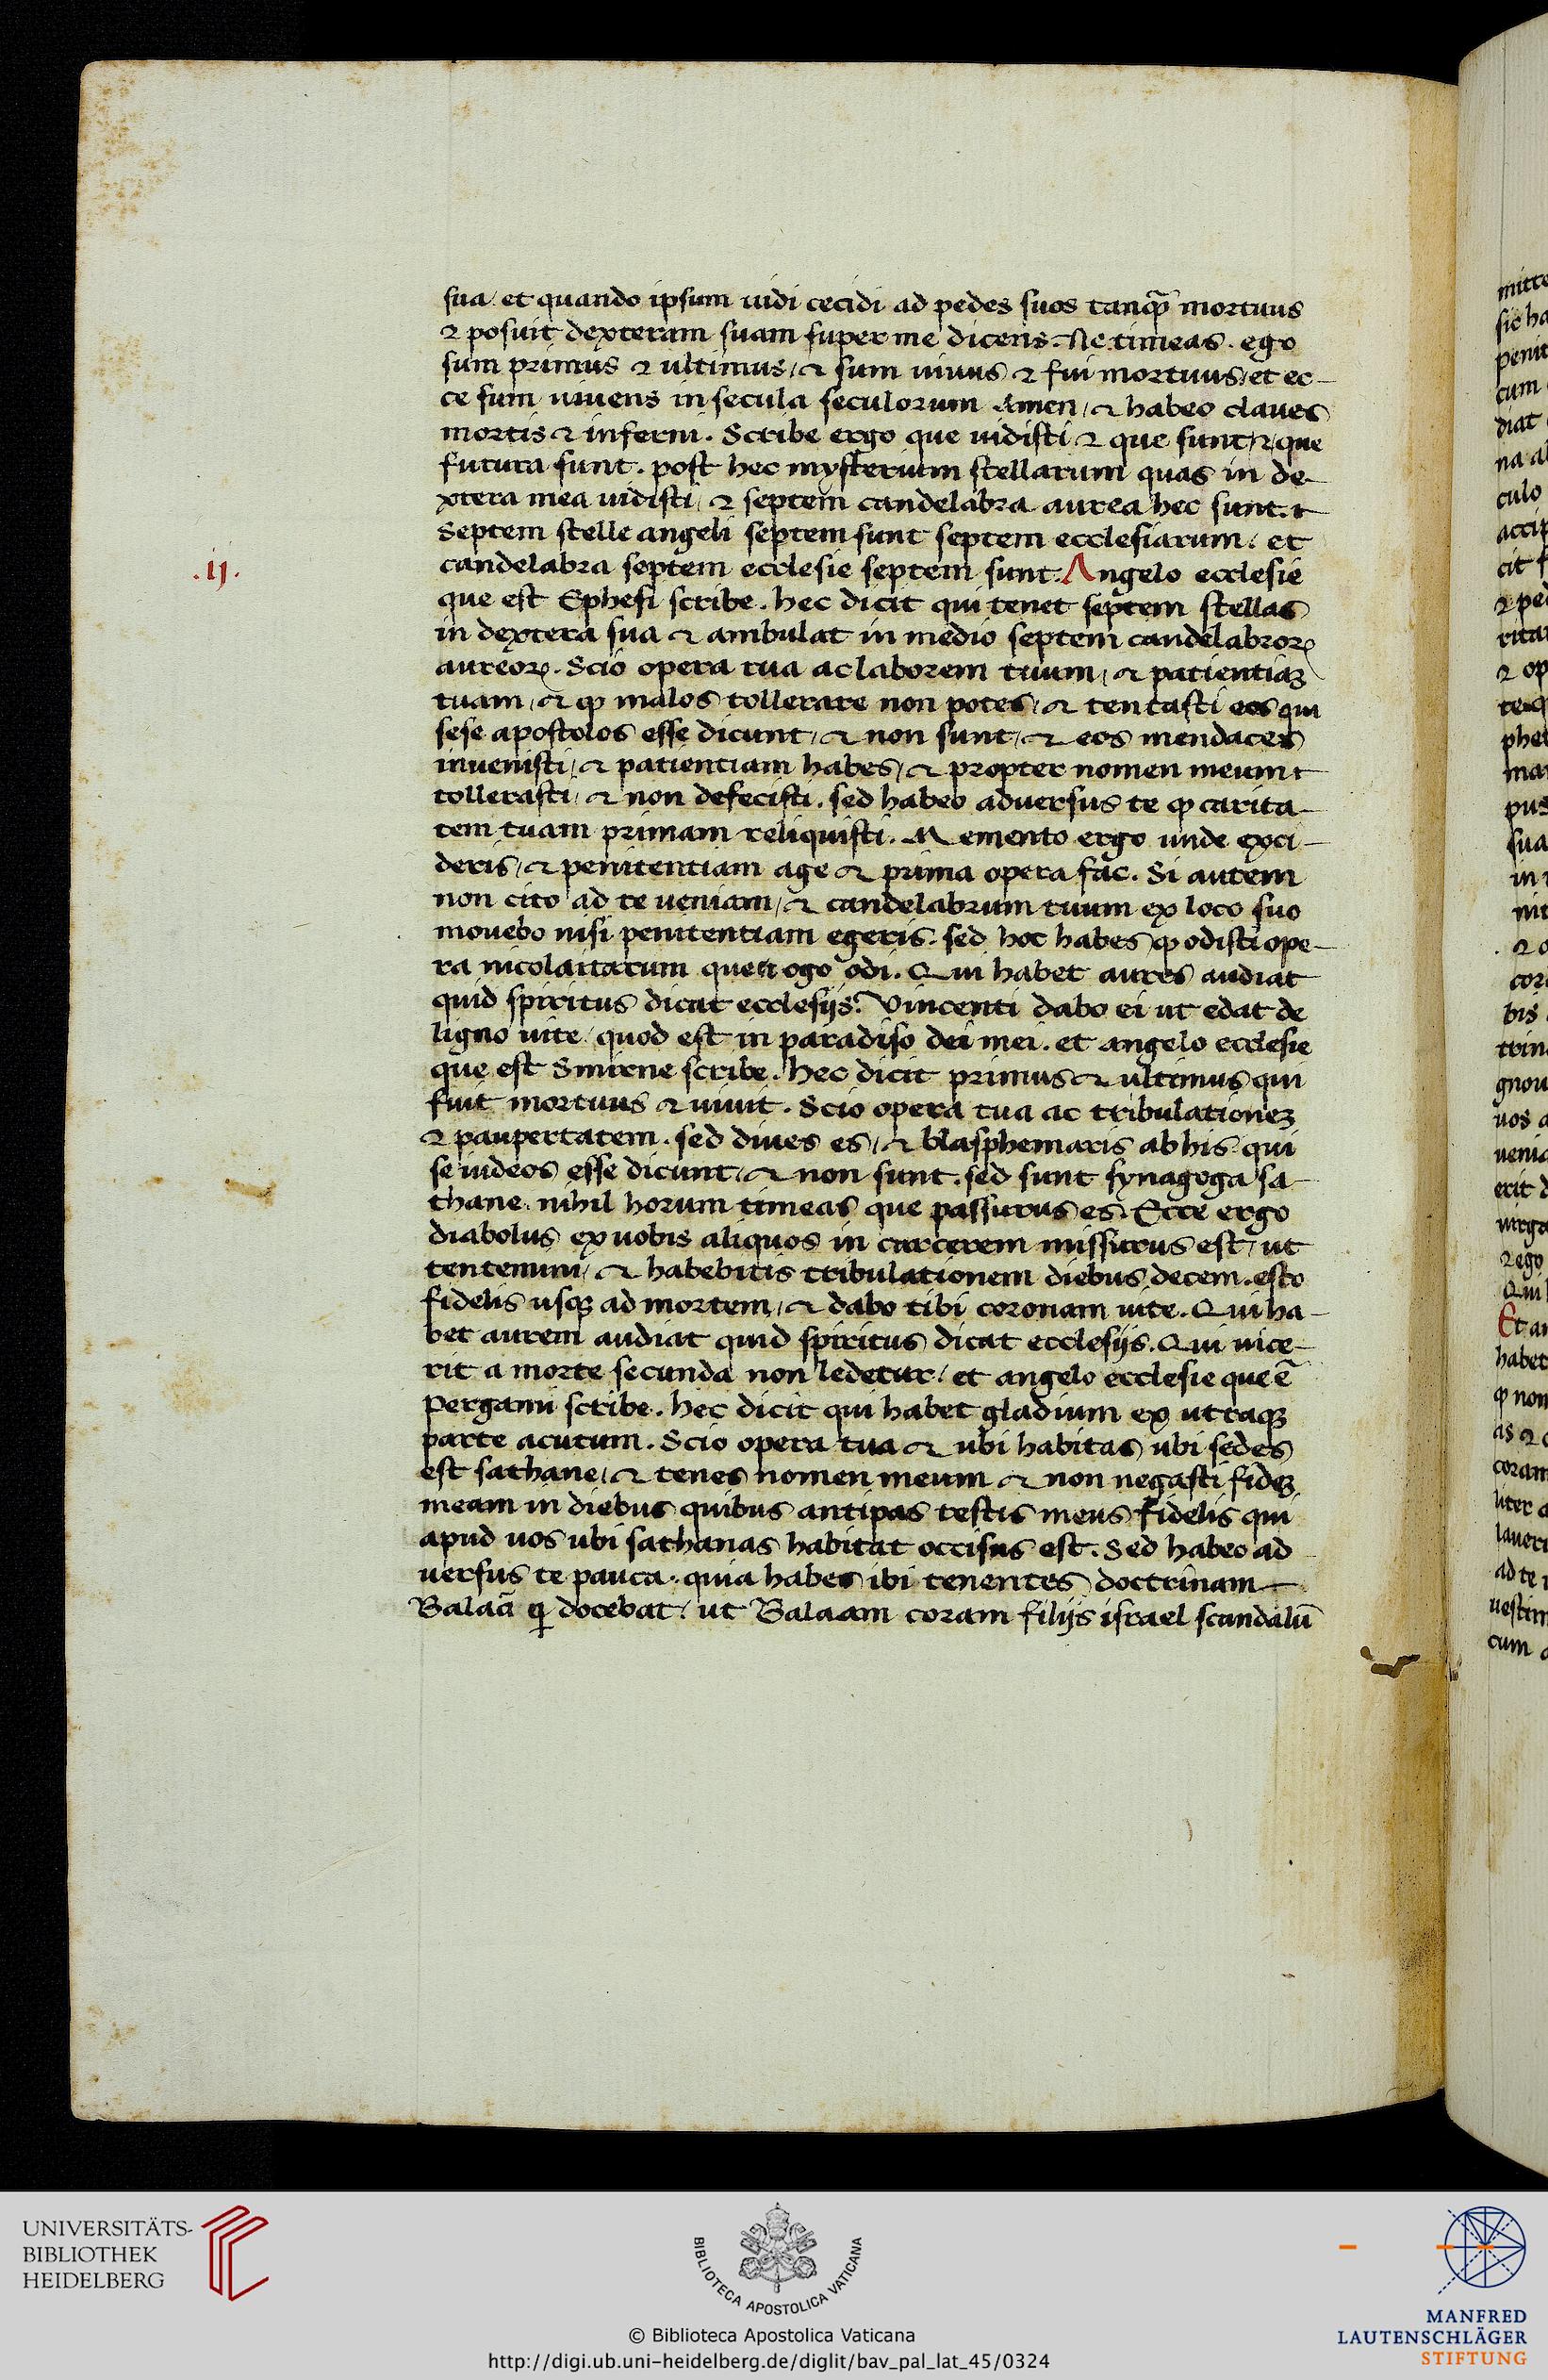 sua / et quando ipsum uidi cecidi ad pedes suos tanqꝫ mortuus
⁊ posuit dexteram suam super me dicens. Ne timeas. ego
sum primus ⁊ ultimus, ⁊ sum uiuus ⁊ fui mortuus, et ec-
ce sum uiuens in secula seculorum Amen, ⁊ habeo claues
mortis ⁊ inferni. Scribe ergo que uidisti ⁊ que sunt, ⁊ que
futura sunt. post hec mysterium stellarum quas in de-
xtera mea uidisti, ⁊ septem candelabra aurea hec sunt.
Septem stelle angeli septem sunt septem ecclesiarum. et
.ij.
candelabra septem ecclesie septem sunt. Angelo ecclesie
que est Ephesi scribe. hec dicit qui tenet septem stellas
in dextera sua ⁊ ambulat in medio septem candelabroꝝ
aureoꝝ. Scio opera tua ac laborem tuum, ⁊ patientiaꝫ
tuam, ⁊ ꝙ malos tollerare non potes, ⁊ tentasti eos qui
sese apostolos esse dicunt, ⁊ non sunt, ⁊ eos mendaces
inuenisti, ⁊ patientiam habes, ⁊ propter nomen meum
tollerasti, ⁊ non defecisti. sed habeo aduersus te ꝙ carita-
tem tuam primam reliquisti. Memento ergo unde exci-
deris, ⁊ penitentiam age ⁊ prima opera fac. Si autem
non cito ad te ueniam, ⁊ candelabrum tuum ex loco suo
mouebo nisi penitentiam egeris. sed hoc habes ꝙ odisti ope-
ra nicolaitarum que ⁊ ego odi. Qui habet aures audiat
quid spiritus dicat ecclesijs. Vincenti dabo ei ut edat de
ligno uite / quod est in paradiso dei mei. et angelo ecclesie
que est Smirne scribe. hec dicit primus ⁊ ultimus qui
fuit mortuus ⁊ uiuit. Scio opera tua ac tribulationeꝫ
⁊ paupertatem. sed diues es, ⁊ blasphemaris ab his qui
se iudeos esse dicunt, ⁊ non sunt. sed sunt synagoga sa-
thane. nihil horum timeas que passurus es. Ecce ergo
diabolus ex uobis aliquos in carcerem missurus est, ut
tentemini, ⁊ habebitis tribulationem diebus decem. esto
fidelis usqꝫ ad mortem, ⁊ dabo tibi coronam uite. Qui ha-
bet aurem audiat quid spiritus dicat ecclesijs. Qui uice-
rit a morte secunda non ledetur. et angelo ecclesie que ē
Pergami scribe. hec dicit qui habet gladium ex utraqꝫ
parte acutum. Scio opera tua ⁊ ubi habitas ubi sedes
est sathane, ⁊ tenes nomen meum ⁊ non negasti fideꝫ
meam in diebus quibus antipas testis meus fidelis qui
apud uos ubi sathanas habitat occisus est. Sed habeo ad
uersus te pauca. quia habes ibi tenentes doctrinam
Balaā qͥ docebat, ut Balaam coram filijs israel scandalū
UNIVERSITÄTS-
BIBLIOTHEK
HEIDELBERG
BIBLIOTECA APOSTOLICA VATICANA
© Biblioteca Apostolica Vaticana
http://digi.ub.uni-heidelberg.de/diglit/bav_pal_lat_45/0324
MANFRED
LAUTENSCHLÄGER
STIFTUNG